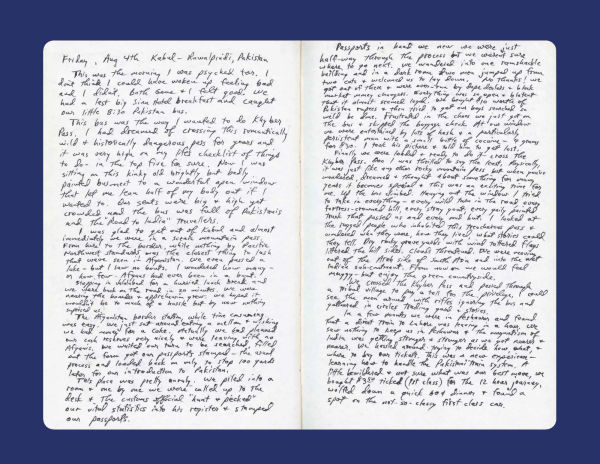 Friday, Aug 4th Kabul - Rawalpindi, Pakistan
This was the morning I was psyched for. I
don't think I could have woken up feeling bad
and I didn't. Both Gene + I felt good. We
had a last big Sina Hotel breakfast and caught
our little 8:30 Pakistan bus.
This bus was the way I wanted to do Khyber
Pass. I had dreamed of crossing this romantically
wild + historically dangerous pass for years and
it was very high on my life's checklist of things
to do - in the top five for sure. Now I was
sitting on this kinky old brightly, but badly
painted bus next to a wonderful open window
that let me lean half of my body out if I
wanted to. Our seats were big + high yet
crowded and the bus was full of Pakistanis
and the "Road to India" travellers.
I was glad to get out of Kabul and almost
immediately we were in a scenic mountain pass.
From Kabul to the border, while nothing by Pacific
Northwest standards was the closest thing to lush
that we've seen in Afghanistan. We even passed a
lake - but I saw no boats. I wondered how many -
or how few - Afghans had ever been in a boat.
Stopping in Jalalabad for a hurried lunch break and
we were back on the road in 20 minutes. We were
nearing the border +
wouldn't be too much of a hassle but by now nothing
The Afghanistan border station while time consuming
was easy. We just sat around eating a melon + wishing
we had money for a coke. Actually we had planned
our cash reserves very nicely + were leaving with no
Afghanis. We waited our turn to be searched, filled
out the form, got our passports stamped - the usual
process and loaded back on only to stop 100 yards
later for our introduction to Pakistan.
This place was pretty unruly. We piled into a
room + one by one we were called up to the
desk + the customs official "hunt + pecked"
our vital statistics into his register + stamped
our passports.
Passports in hand we new we were just
half-way through the process but we weren't sure
where to go next. We wandered into one ramshackle
building and in a dark room two men jumped up from
two cots + welcomed us to lay down. No thanks! We
got out of there + were overrun by dope dealers + black
market money changers. Everything was so open + blatant
that it almost seemed legal. We bought $10 worth of
Pakistan rupees + then tried to get on guys roasted in
we'd be due. Frustrated in the chaos we just got on
the bus + skipped the baggage check. At our window
we were entertained by lots of hash + a particularly
persistent man with a small bottle of cocaine - 4 grams
for $30. I took his picture + told him to get lost.
Finally we were loaded + ready to do it cross the
Khyber Pass. Boy I was thrilled to say the least. Physically,
it was just like any other rocky mountain pass but when you've
wondered, dreamed + thought about something for many
years it becomes special + this was an exciting time for
me. Up the bus climbed. Hanging out the window I tried
to take in everything - every wild turn in the road every
fortress-crowned hill, every stray goat, every gaily painted
truck that passed us and every mud hut. I looked at
the rugged people who inhabited this treacherous pass +
wondered who they were, how they lived, what stories could
they tell. Dry rocky grave yards with wind tattered flags
littered the hill sides. Clouds threatened. We were moving
out of the Arab side of south Asia and into the moist
Indian subcontinent. From now on we would feel
muggy - but enjoy the green countryside.
We crossed the Khyber Pass and passed through
a tribal village. To buy a toll for the privilege. I could
see the men around with rifles ignoring the bus and
gathered in circles trading goods + stories.
In a few minutes we were in Peshawar and found
that a direct train to Lahore was leaving in an hour. We
saw nothing to keep us in Peshawar + the magnetism of
India was getting stronger + stronger as we got nearer +
nearer. We hassled around trying to decide how about +
where to buy our tickets. This was a new experience -
learning how to handle the Pakistani train system. A
little bewildered + not sure what was our best move, we
bought $3.50 ticket (1st class) for the 12 hour journey,
wolfed down a quick 60¢ dinner + found a
spot on the not-so-classy first class car.